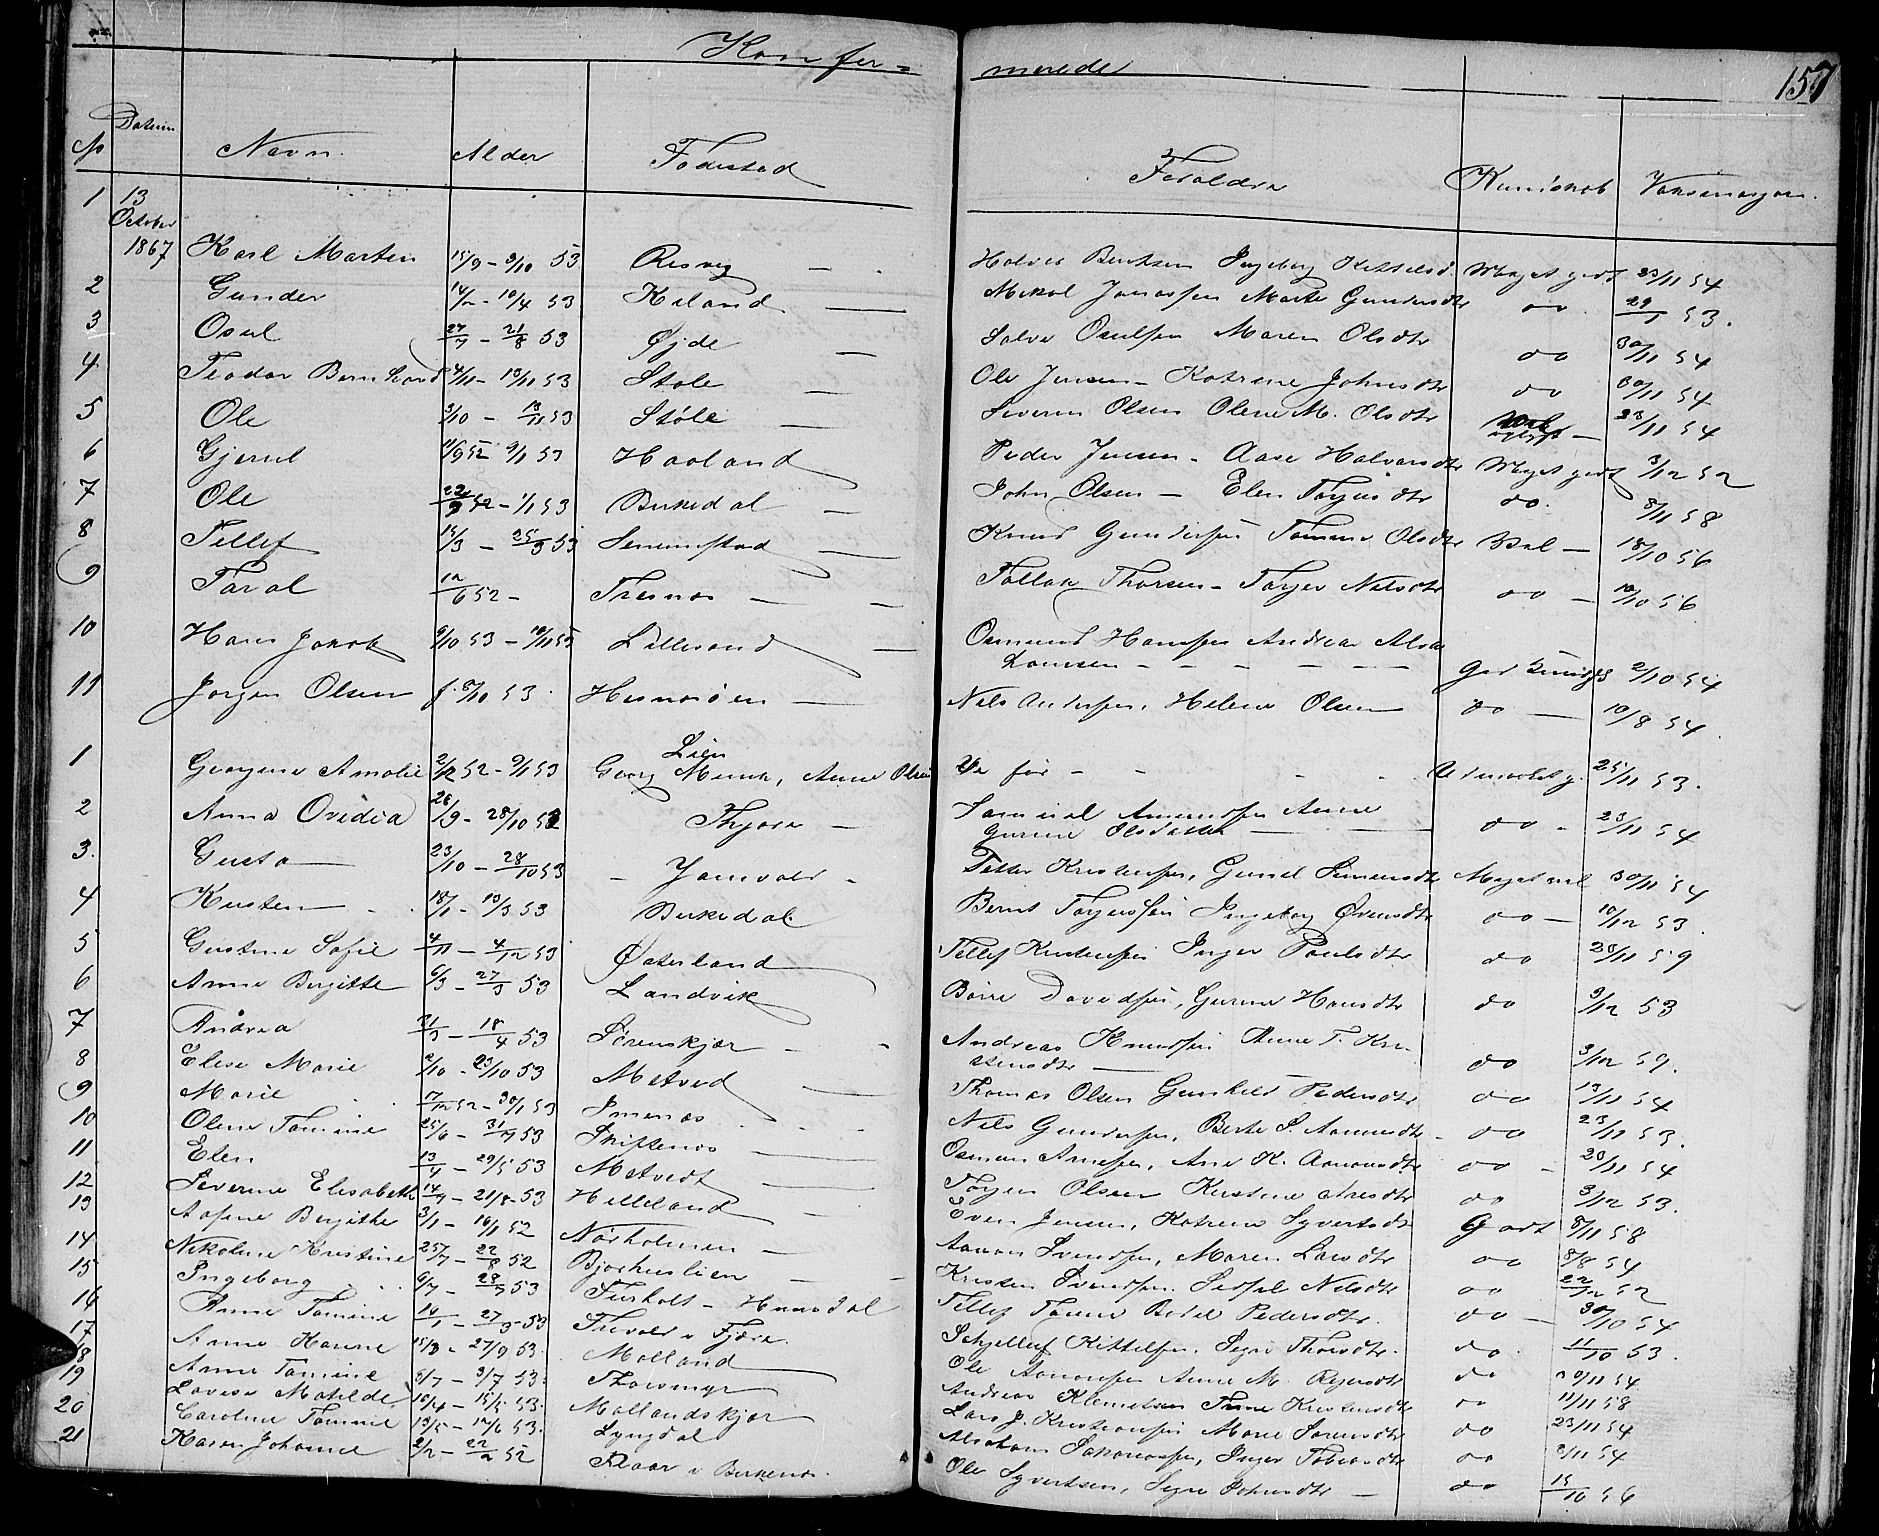 Konfer= merede 157
No Datum Navn. Alder Fødested Foraldre Kundskab Vaksination.
1 13 October 1867 Karl Marten 15/9 - 9/10 53 Resvig Halvor Bentsen Ingeborg Kittelsd. Meget godt 23/11 54
2 Gunder 14/2 - 10/4 53 Kiland Mikal Jonassen Marte Gundersdtr do 29/1 53.
3 Osul 27/7 - 21/8 53 Øjde Salve Osulsen Maren Olsdtr do 30/11 54
4. Teodor Bernhard 4/11 - 13/11 53 Støle Ole Jensen - Katrine Johnsdtr do 30/11 54
5 Ole 3/10 - 13/11 53 Støle Severin Olsen Olene M. Olsdtr 23/11 54
6 Gjerul 11/9 52 9/1 53 Haaland Peder Jensen - Aase Halvorsdtr Meget godt 3/12 52
7 Ole 22/9 52 - 1/1 53 Birkedal John Olsen - Elen Torjusdtr do. 8/11 58
8 Tellef 15/3 - 25/3 53 Knud Gundersen Tomine Olsdtr Vel - 18/10 56
9 Taral 12/6 52 - Tresnes Tallak Thorsen - Torjer Nilsdtr do 10/10 56
10 Hans Jakob 9/10 53 - Lillesand Osmund Hansen Andrea Alva
Lauesen - - - - 2/10 54
11 Jorgen Olsen f. 8/10 53. Hesnesøen Nils Andersen, Helene Olsen do - 10/8 54
1 Georgine Amalie 2/12 52 - 9/1 53 Lien
Georg Munk, Anne Olsen Se før - - - - Udmærket g. 25/11 53.
2 Anna Ovidia 26/9 - 28/10 52 Thjore Samuel Amundsen Anne
Gurine - do - 23/11 54
3. Gusta 23/10 - 28/10 53 Jonsvold Petter Kristensen, Gunild Simensdtr Meget vel 30/11 54
4 Kirsten 18/1 - 13/3 53 Birkedal. Bernt Torjussen Ingeborg Øvensdtr do - 10/12 53.
5 Gustine Sofie 4/11 - 4/12 53 Østerland Tellef Kristensen Inger Poulsdtr do 23/11 59
6 Anne Birgitte 6/3 - 27/3 53 Landvik Børre Davidsen, Gurine Hansdtr do 9/12 53
7 Andrea 31/3 - 18/4 53 Sørenskjær Andreas Knudsen Anne T. Kri-
stensdtr do 3/12 59.
8 Elise Marie 2/10 - 23/10 53 Metved Thomas Olsen Gunhild Pedersdtr do 13/11 54
9 Marie 17/12 52 - 30/1 53 Imenæs Nils Gundersen, Berte S. Aanundtr do 23/11 53.
10 Olene Tomine 25/6 - 31/7 53 Skiftenes Osmun Arnesen, Ane K. Aanonsdtr do 28/11 54
11 Elen 13/4 - 29/5 53 Metvedt Torjer Olsen Kirstine Aresdtr do 3/12 53.
12 Severine Elisabeth 14/7 - 21/8 - 53 Hilleland Even Jensen, Katrine Syvertsdtr Godt 8/11 58
13 Aasine Birgithe 3/1 - 16/1 52 Nørholmen Aanon Svendsen, Maren Larsdtr do 8/8 54
14 Nikoline Kristine 25/7 - 22/8 52 Bjorkuslien Kristen Svendsen Sedsel Nilsdtr do 22/12 52
15 Ingeborg 9/7 - 28/7 53 Furholt - Tellef Bodel Pedersdtr. do 30/10 54
16 Anne Tomine 27/3 - 53 Trevold i Fjære. Schjellef Kittelsen, Segre Thorsdtr. do 11/10 53.
17 Anne Karine 15/8 - 27/9 53. Molland Ole Aanonsen Anne M. Rejersdtr do 30/11 54
18 Anne Tomine 5/7 - 3/7 53. Thorsmyr Andreas Klemetsen Kristensdtr do 11/11 58
19 Lovise Matilde 10/4 - 15/5 53. Mollandskjær Lars J. Kristiansen Marie Sørensdtr do 23/11 54
20 Caroline Tomine 13/5 - 12/6 53. Lyngdal Abraham Sakariassen, Inger Tobiasdtr do 2/11 54
21 Karen Johanne 2/2 - 22/2 52 Raar i Birkenes. Ole Syvertsen, Segre Johnsdtr - do 15/10 56